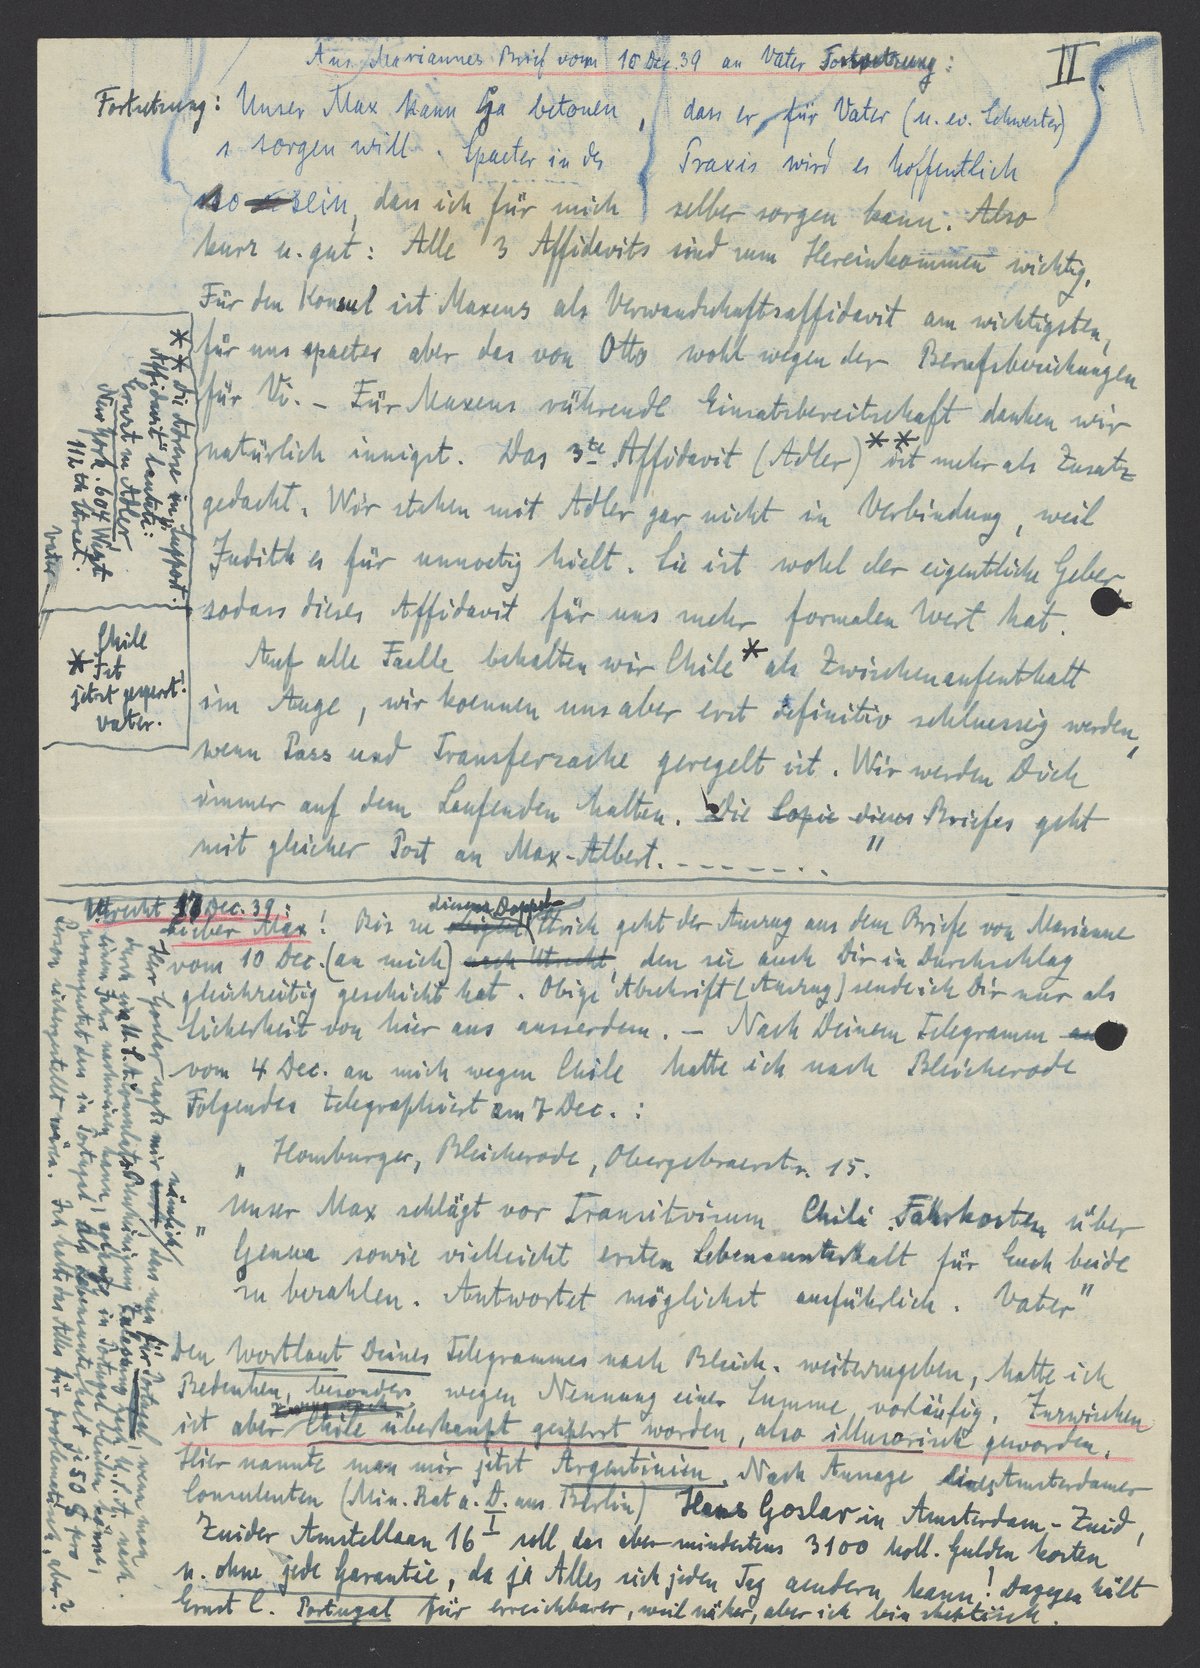 Aus Mariannes Brief vom 10 Dec. 39 an Vater Fortsetzung:
II.
Fortsetzung: Unser Max kann ja betonen, dass er für Vater (u. ev. Schwester)
sorgen will. Spaeter in der Praxis wird es hoffentlich
so sein, dass ich für mich selber sorgen kann. Also
kurz u. gut: Alle 3 Affidavits sind zum Hereinkommen wichtig.
Für den Konsul ist Maxens als Verwandschaftsaffidavit am wichtigsten,
für uns spaeter aber das von Otto wohl wegen der Berufsbeziehungen
für Vi. – Für Maxens rührende Einsatzbereitschaft danken wir
natürlich innigst. Das 3te Affidavit (Adler) ** ist mehr als Zusatz
gedacht. Wir stehen mit Adler gar nicht in Verbindung, weil
Judith es für unnoetig hielt. Sie ist wohl der eigentliche Geber,
sodass dieses Affidavit für uns mehr formalen Wert hat.
Auf alle Faelle behalten wir Chile * als Zwischenaufenthalt
im Auge, wir koennen uns aber erst definitiv schluessig werden,
wenn Pass und Transfersache geregelt ist. Wir werden Dich
immer auf dem Laufenden halten. Die Copie dieses Briefes geht
mit gleicher Post an Max-Albert. - - - - - - - "
** Die Adresse im "Support
Affidavit" lautete:
Ernst M Adler
New York. 604 West
112th Street.
Vater
Chile
* Ist
jetzt gesperrt!
Vater.
Utrecht 17 Dec. 39:
Lieber Max! Bis zu diesem Doppel-Strich geht der Auszug aus dem Briefe von Marianne
vom 10 Dec. (an mich) nach Utrecht, den sie auch Dir in Durchschlag
gleichzeitig geschickt hat. Obige Abschrift (Auszug) sende ich Dir nur als
Sicherheit von hier aus ausserdem. – Nach Deinem Telegramm
vom 4 Dec. an mich wegen Chile hatte ich nach Bleicherode
Folgendes telegraphiert am 7 Dec.:
„Homburger, Bleicherode, Obergebraerstr. 15.
„Unser Max schlägt vor Transitvisum Chili Fahrkosten über
Genua sowie vielleicht ersten Lebensunterhalt für Euch beide
zu bezahlen. Antwortet möglichst ausführlich. Vater"
Den Wortlaut Deines Telegrammes nach Bleich. weiterzugeben, hatte ich
Bedenken, besonders wegen Nennung einer Summe, vorläufig. Inzwischen
ist aber Chile überhaupt gesperrt worden, also illusorisch geworden.
Hier nannte man mir jetzt Argentinien. Nach Aussage eines Amsterdamer
Consulenten (Min. Rat a. D. aus Berlin) Hans Goslar in Amsterdam-Zuid,
Zuider Amstellaan 16 I soll das aber mindestens 3100 holl. Gulden kosten
u. ohne jede Garantie, da ja Alles sich jeden Tag aendern kann! Dagegen hält
Ernst C. Portugal für erreichbarer, weil näher, aber ich bin skeptisch.
Herr Goslar sagte mir nämlich, dass man für Portugal, wenn man
durch U.S.A. Bescheinigung Zulassung nach U.S.A. nach
einem Jahr nachweisen kann, solange in Portugal bleiben könne,
vorausgesetzt dass in Portugal als Lebensunterhalt je 50 $ pro
Person sichergestellt wären. Ich halte das Alles für problematisch, aber?